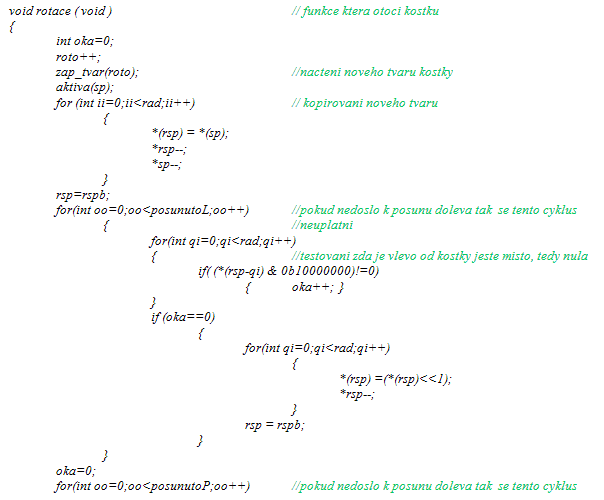 void rotace ( void ) // funkce ktera otoci kostku
{
int oka=0;
roto++;
zap_tvar(roto); //nacteni noveho tvaru kostky
aktiva(sp);
for (int ii=0;ii<rad;ii++) // kopirovani noveho tvaru
{
*(rsp) = *(sp);
*rsp--;
*sp--;
}
rsp=rspb;
for(int oo=0;oo<posunutoL;oo++) //pokud nedoslo k posunu doleva tak se tento cyklus
{ //neuplatni
for(int qi=0;qi<rad;qi++)
{ //testovani zda je vlevo od kostky jeste misto, tedy nula
if( (*(rsp-qi) & 0b10000000)!=0)
{ oka++; }
}
if (oka==0)
{
for(int qi=0;qi<rad;qi++)
{
*(rsp) =(*(rsp)<<1);
*rsp--;
}
rsp = rspb;
}
}
oka=0;
for(int oo=0;oo<posunutoP;oo++) //pokud nedoslo k posunu doleva tak se tento cyklus